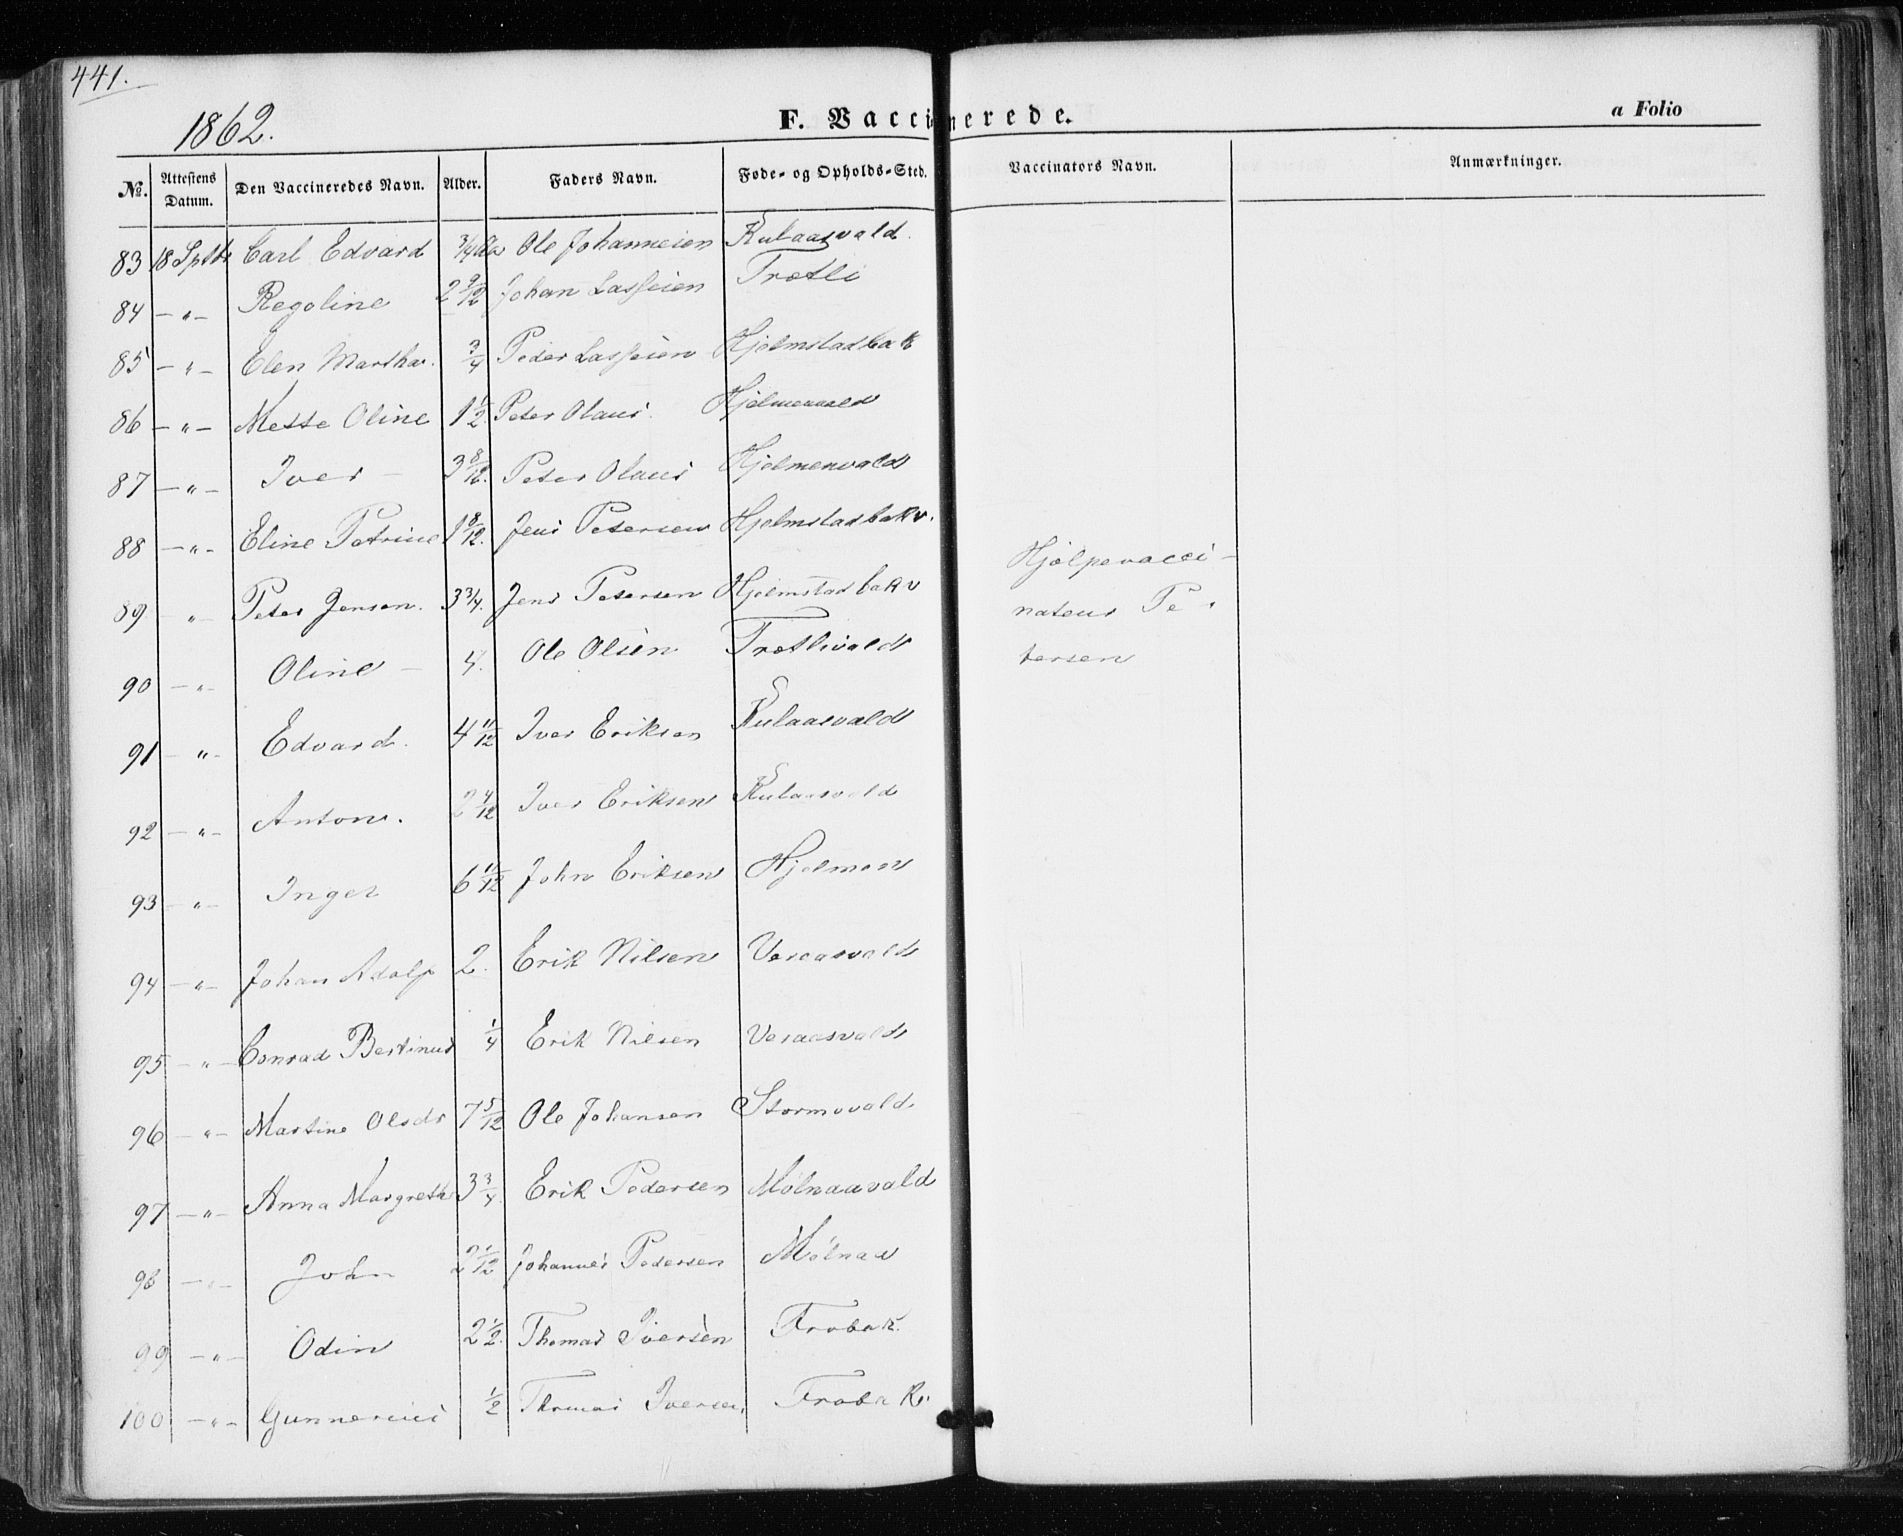 441.
1862.
F. Vaccinerede.
a Folio
No. Attestens Datum. Den Vaccineredes Navn. Alder. Faders Navn. Føde- og Opholds-Sted. Vaccinators Navn. Anmærkninger.
83 18 Sptbr Carl Edvard 3/4 Ole Johannesen Kulaasvald.
84 — " — Regoline 2 9/12 Johan Lassesen Trætli
85 — " — Elen Martha. 3/4 Peder Lassesen Hjelmstadbak
86 — " — Mette Oline 1 1/2 Peter Olaus. Hjelmenvald
87 — " — Iver — 3 8/12. Peter Olaus Hjelmenvald
88 — " — Eline Petrine 1 8/12. Jens Petersen Hjelmstadbakv.
89 " — Peter Jensen. 3 3/4. Jens Petersen Hjelmstadbakv
90 — " Oline — 4. Ole Olsen Trætlivald
91 — " — Edvard. 4 11/12 Iver Eriksen Kulaasvald
92 — " — Anton. 2 4/12 Iver Eriksen Kulaasvald
93 — " — Inger 6 11/12 John Eriksen Hjelmen
94 — " — Johan Adolf 2. Erik Nilsen Veraasvald
95 — " — Conrad Bertinus 1/4 Erik Nilsen Veraasvald
96 — " — Martine Olsdr 7 5/12 Ole Johansen Stormovald
97 — " — Anna Margreth 3 3/4. Erik Pedersen Mølnaavald
98 — " — John 2 1/12 Johannes Pedersen Mølnaa
99 — " — Odin 2 1/2. Thomas Iversen Frobak.
100 — " — Gunnerius 1/2 Thomas Iversen. Frobak.
Hjelpevacci-
nateur Pe-
tersen